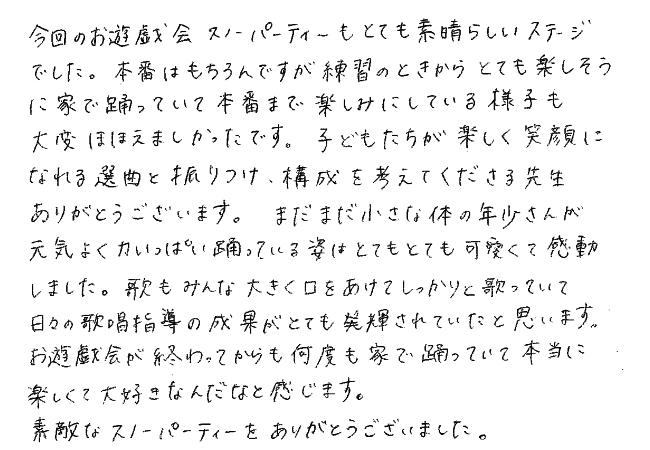 今回のお遊戯会 スノーパーティーもとても素晴らしいステージ
でした。本番はもちろんですが練習のときからとても楽しそう
に家で踊っていて本番まで楽しみにしている様子も
大変ほほえましかったです。子どもたちが楽しく笑顔に
なれる選曲と振りつけ、構成を考えてくださる先生
ありがとうございます。 まだまだ小さな体の年少さんが
元気よく力いっぱい踊っている姿はとてもとても可愛くて感動
しました。歌もみんな大きく口をあけてしっかりと歌っていて
日々の歌唱指導の成果がとても発輝されていたと思います。
お遊戯会が終わってからも何度も家で踊っていて本当に
楽しくて大好きなんだなと感じます。
素敵なスノーパーティーをありがとうございました。